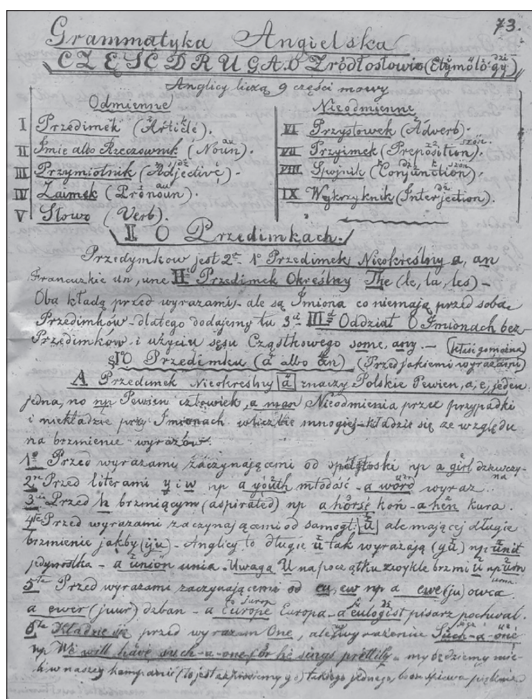 73.
Grammatyka Angielska
CZĘŚĆ DRUGA O Źródłosłowie (Etymology)
Anglicy liczą 9 części mowy
Odmienne
I Przedimek (Article).
II Imie albo Rzeczownik (Noun).
III Przymiotnik (Adjective).
IV Zaimek (Pronoun).
V Słowo (Verb).
Nieodmienne
VI Przysłowek (Adverb).
VII Przyimek (Preposition).
VIII Spojnik (Conjunction).
IX Wykrzyknik (Interjection).
I O Przedimkach.
Przedymkow jest 2. 1e Przedimek Nieokreślny a, an
Francuzkie un, une II Przedimek Okreslny The (le, la, les) -
Oba kładą przed wyrazami - ale są Imiona co niemają przed sobą
Przedimków - dlatego dodajemy tu 3 III Oddział O Imionach bez
Przedimków i użyciu Cząstkowego some, any. -
§1 O Przedimku (a albo an) (Przed jakiemi wyrazami
A Przedimek Nieokreslny a znaczy Polskie Pewien, a, e, jeden
jedna, no np Pewien człowiek, a man Nieodmienia przez przypadki
i niekładzie przy Imionach w liczbie mnogiej - kładzie się ze względu
na brzmienie wyrazów.
1e Przed wyrazami zaczynającemi od spółgłoski np a girl dziewczyna
2e Przed literami y i w np a youth młodość - a word wyraz
3 Przed h brzmiącym (aspirated) np a horse koń - a hen kura.
4te Przed wyrazami zaczynającemi od samogł u ale mającej długie
brzmienie jakby (iju) - Anglicy to długie u tak wyrażają (yu) np: unit
jedynostka - a union unia. Uwaga U na początku zwykle brzmi u np
5te Przed wyrazami zaczynającemi od eu, ew np a ewe (ju) owca
a ewer (juwr) dzban - a Europe Europa - a eulogist pisarz pochwał.
6te Kładzie się przed wyrazem One, ale wyrażenie Such-a-one
np We will have such-a-one for he sings prettily - my będziemy mieli
w naszej kompanii (to jest jednego bo on śpiewa pięknie